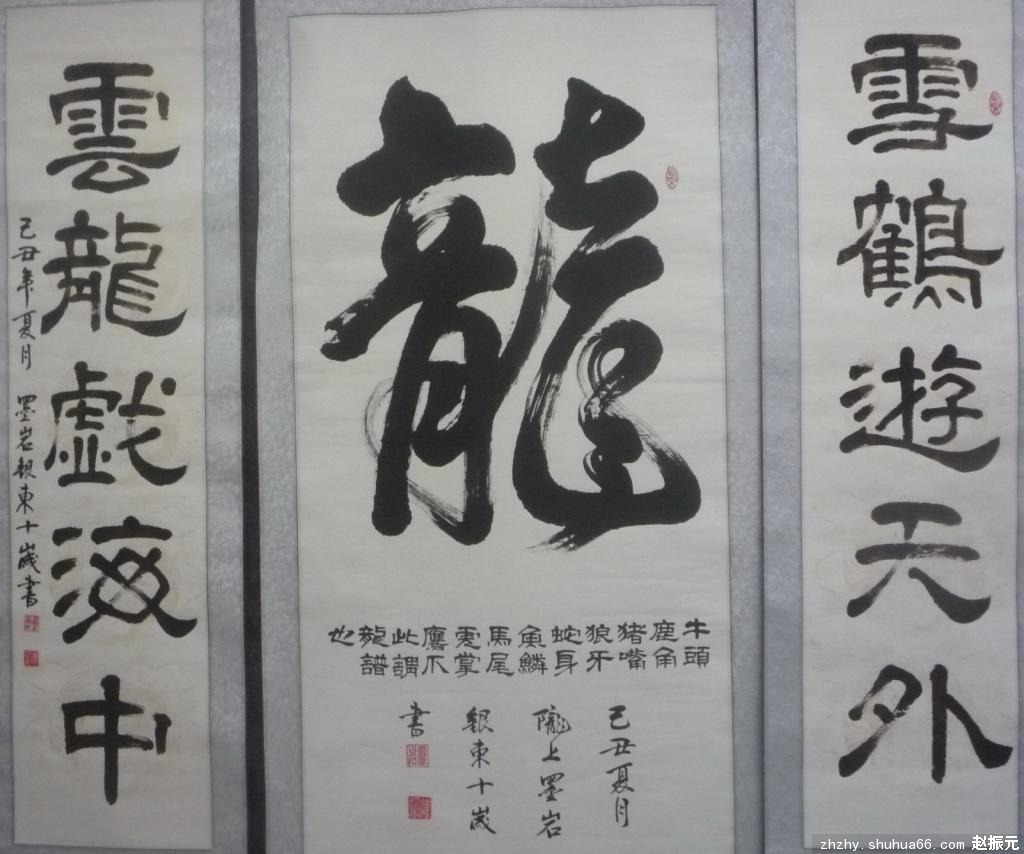 雪鶴遊天外
龍
牛頭
鹿角
猪嘴
狼牙
蛇身
魚鱗
馬尾
虎掌
鷹爪
此謂
龍譜
也
己丑夏月
隴上墨岩
銀東十歲
書
雲龍戯海中
己丑年夏月 墨岩銀東十歲書
zhzhy.shuhua66.com 赵振元